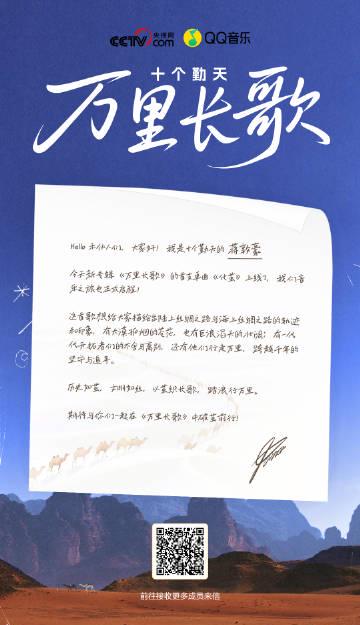 CCTV 央视网
.com
QQ音乐
十个勤天
万里长歌
Hello 禾伙人们，大家好！我是十个勤天的 蒋敦豪
今天新专辑《万里长歌》的首支单曲《化茧》上线了，我们音
乐之旅也正式启程！
这首歌想给大家描绘出陆上丝绸之路与海上丝绸之路的轨迹
和印象，有大漠孤烟的苍茫，也有巨浪滔天的壮阔；有一代
代开拓者们的不舍与离别，还有他们行走万里，跨越千年的
坚守与追寻。
历史如茧，
以茧织长歌，踏浪行万里。
期待与你们一起在《万里长歌》中破茧前行！
前往接收更多成员来信